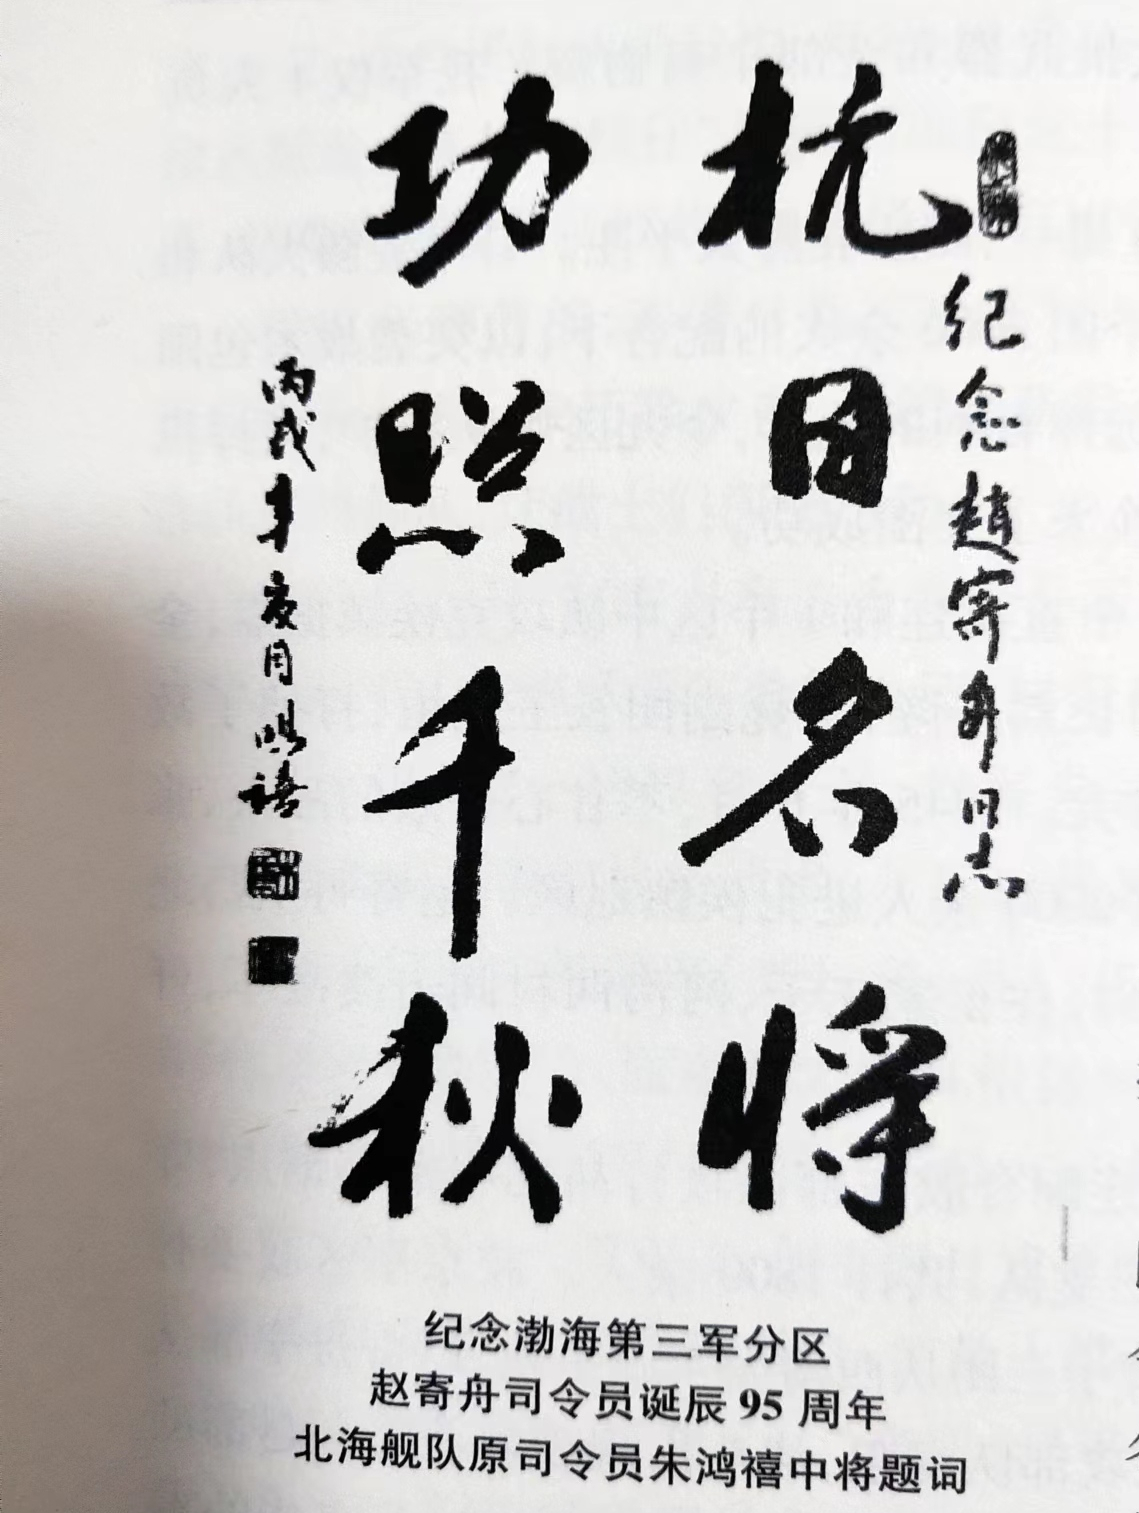 纪念趙寄舟同志
抗日名将
功照千秋
丙戌年亥月鸿禧
纪念渤海第三军分区
赵寄舟司令员诞辰 95 周年
北海舰队原司令员朱鸿禧中将题词